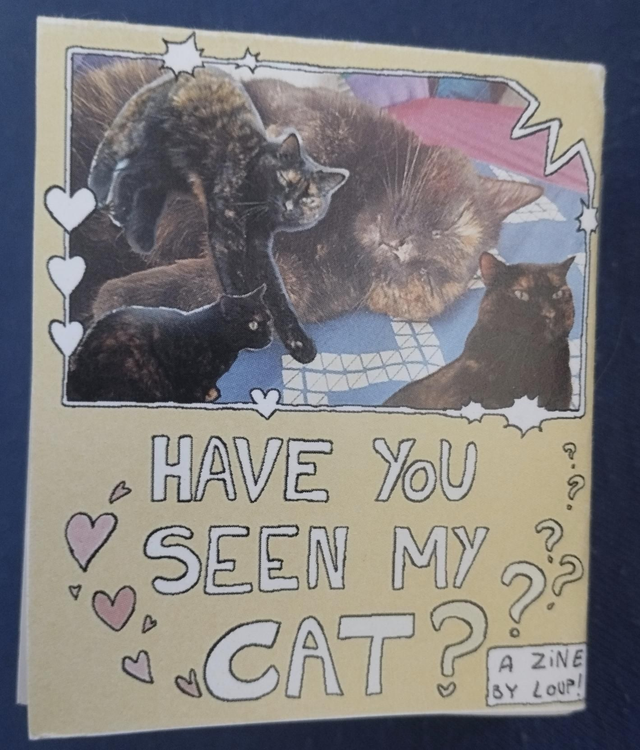 HAVE YOU
SEEN MY
CAT?
? ? ? ? ? ?
A ZiNE
BY LOUP!